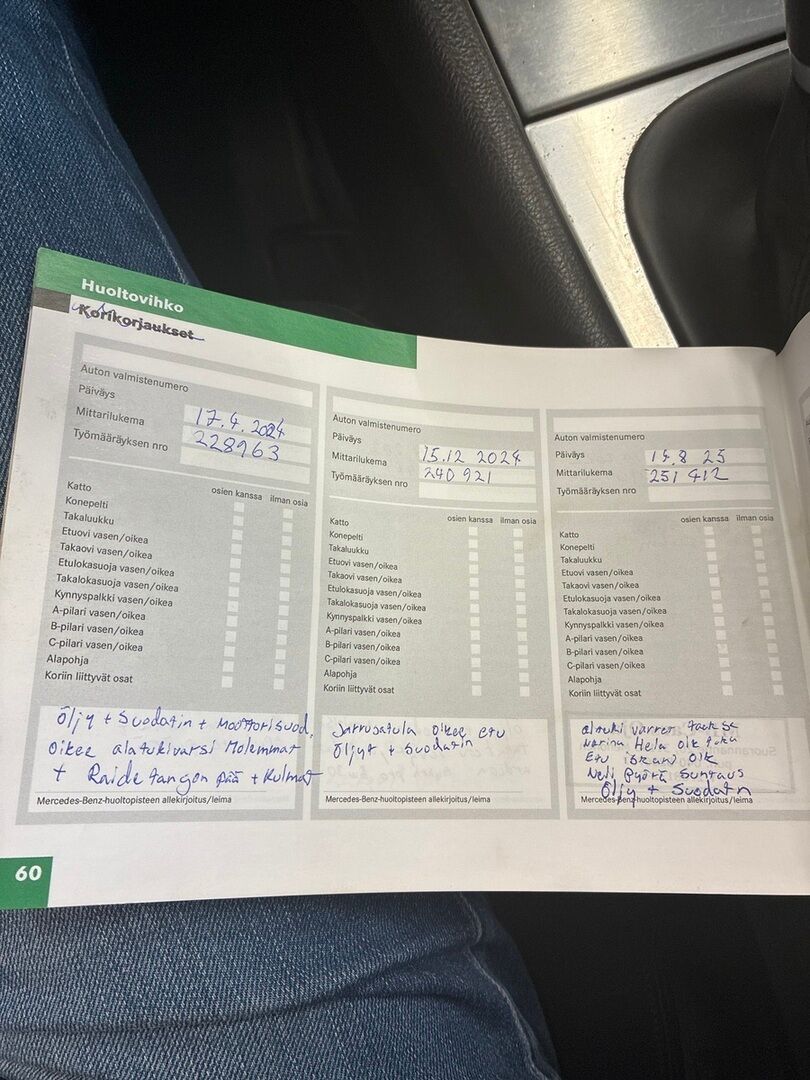 Huoltovihko
Korikorjaukset
Auton valmistenumero
Päiväys
Mittarilukema 17.4.2024
Työmääräyksen nro 228963
osien kanssa ilman osia
Katto
Konepelti
Takaluukku
Etuovi vasen/oikea
Takaovi vasen/oikea
Etulokasuoja vasen/oikea
Takalokasuoja vasen/oikea
Kynnyspalkki vasen/oikea
A-pilari vasen/oikea
B-pilari vasen/oikea
C-pilari vasen/oikea
Alapohja
Koriin liittyvät osat
Öljy + Suodatin + Moottorisuod.
Oikee alatukivarsi Molemmat
+ Raidetangon pää + Kulmat
Mercedes-Benz-huoltopisteen allekirjoitus/leima
Auton valmistenumero
Päiväys
Mittarilukema 15.12 2024
Työmääräyksen nro 240 921
osien kanssa ilman osia
Katto
Konepelti
Takaluukku
Etuovi vasen/oikea
Takaovi vasen/oikea
Etulokasuoja vasen/oikea
Takalokasuoja vasen/oikea
Kynnyspalkki vasen/oikea
A-pilari vasen/oikea
B-pilari vasen/oikea
C-pilari vasen/oikea
Alapohja
Koriin liittyvät osat
Jarrusatula Oikee etu
Öljyt + Suodatin
Mercedes-Benz-huoltopisteen allekirjoitus/leima
Auton valmistenumero
Päiväys 8 25
Mittarilukema 251 412
Työmääräyksen nro
osien kanssa ilman osia
Katto
Konepelti
Takaluukku
Etuovi vasen/oikea
Takaovi vasen/oikea
Etulokasuoja vasen/oikea
Takalokasuoja vasen/oikea
Kynnyspalkki vasen/oikea
A-pilari vasen/oikea
B-pilari vasen/oikea
C-pilari vasen/oikea
Alapohja
Koriin liittyvät osat
alatuki varret
Hela oik taka
Etu iskari oik
Neli Pyörä Suntaus
Öljy + Suodatn
Mercedes-Benz-huoltopisteen allekirjoitus/leima
60